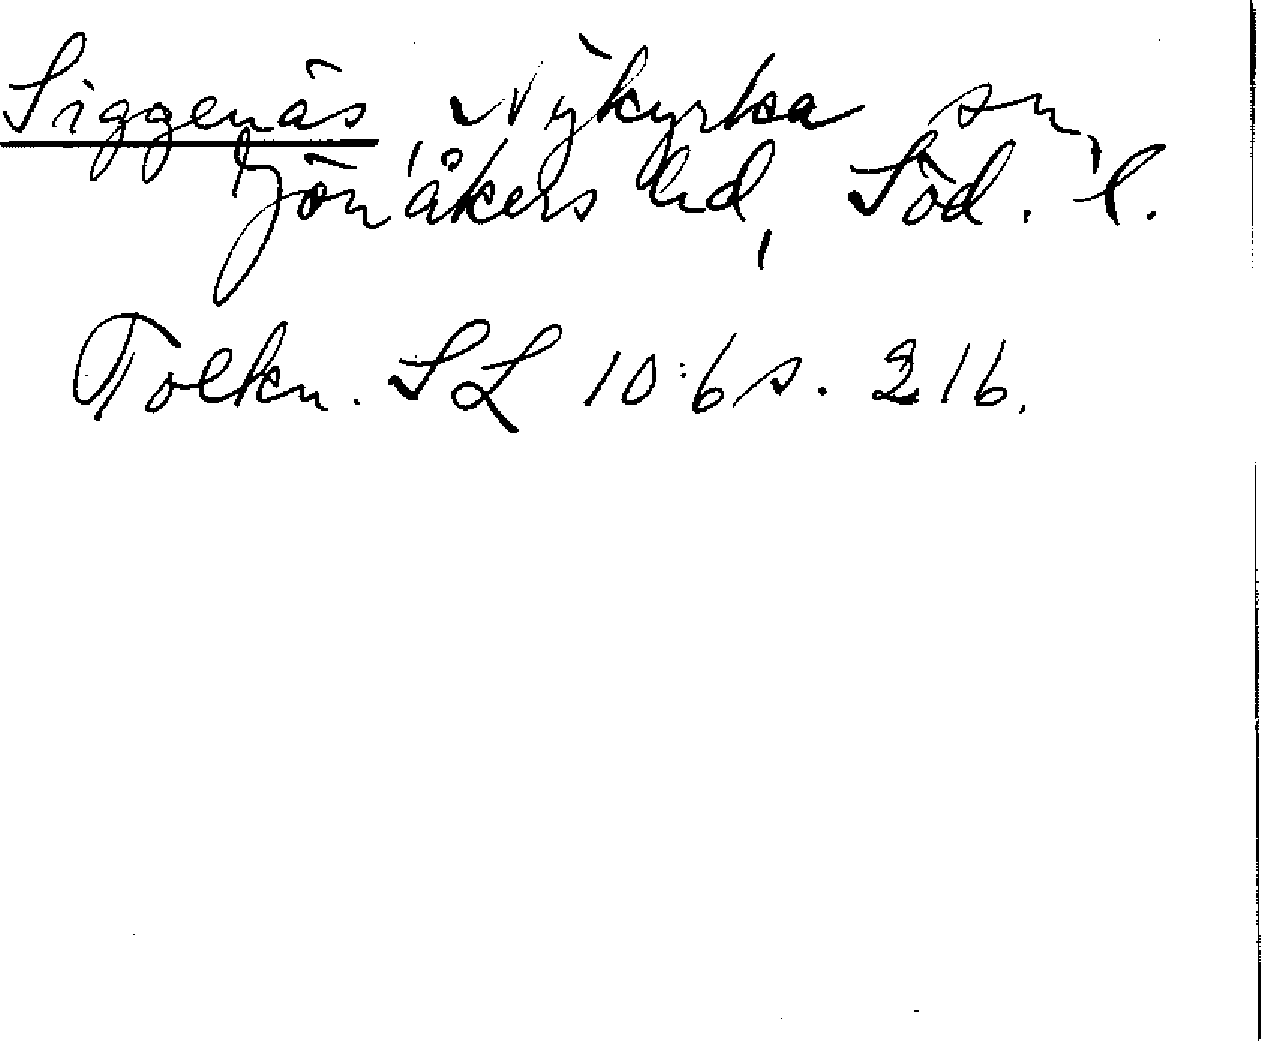 Siggenäs, Nykyrka sn,
Jönåkers hd, Söd. l.
Tolkn. SL 10:6 s. 216.